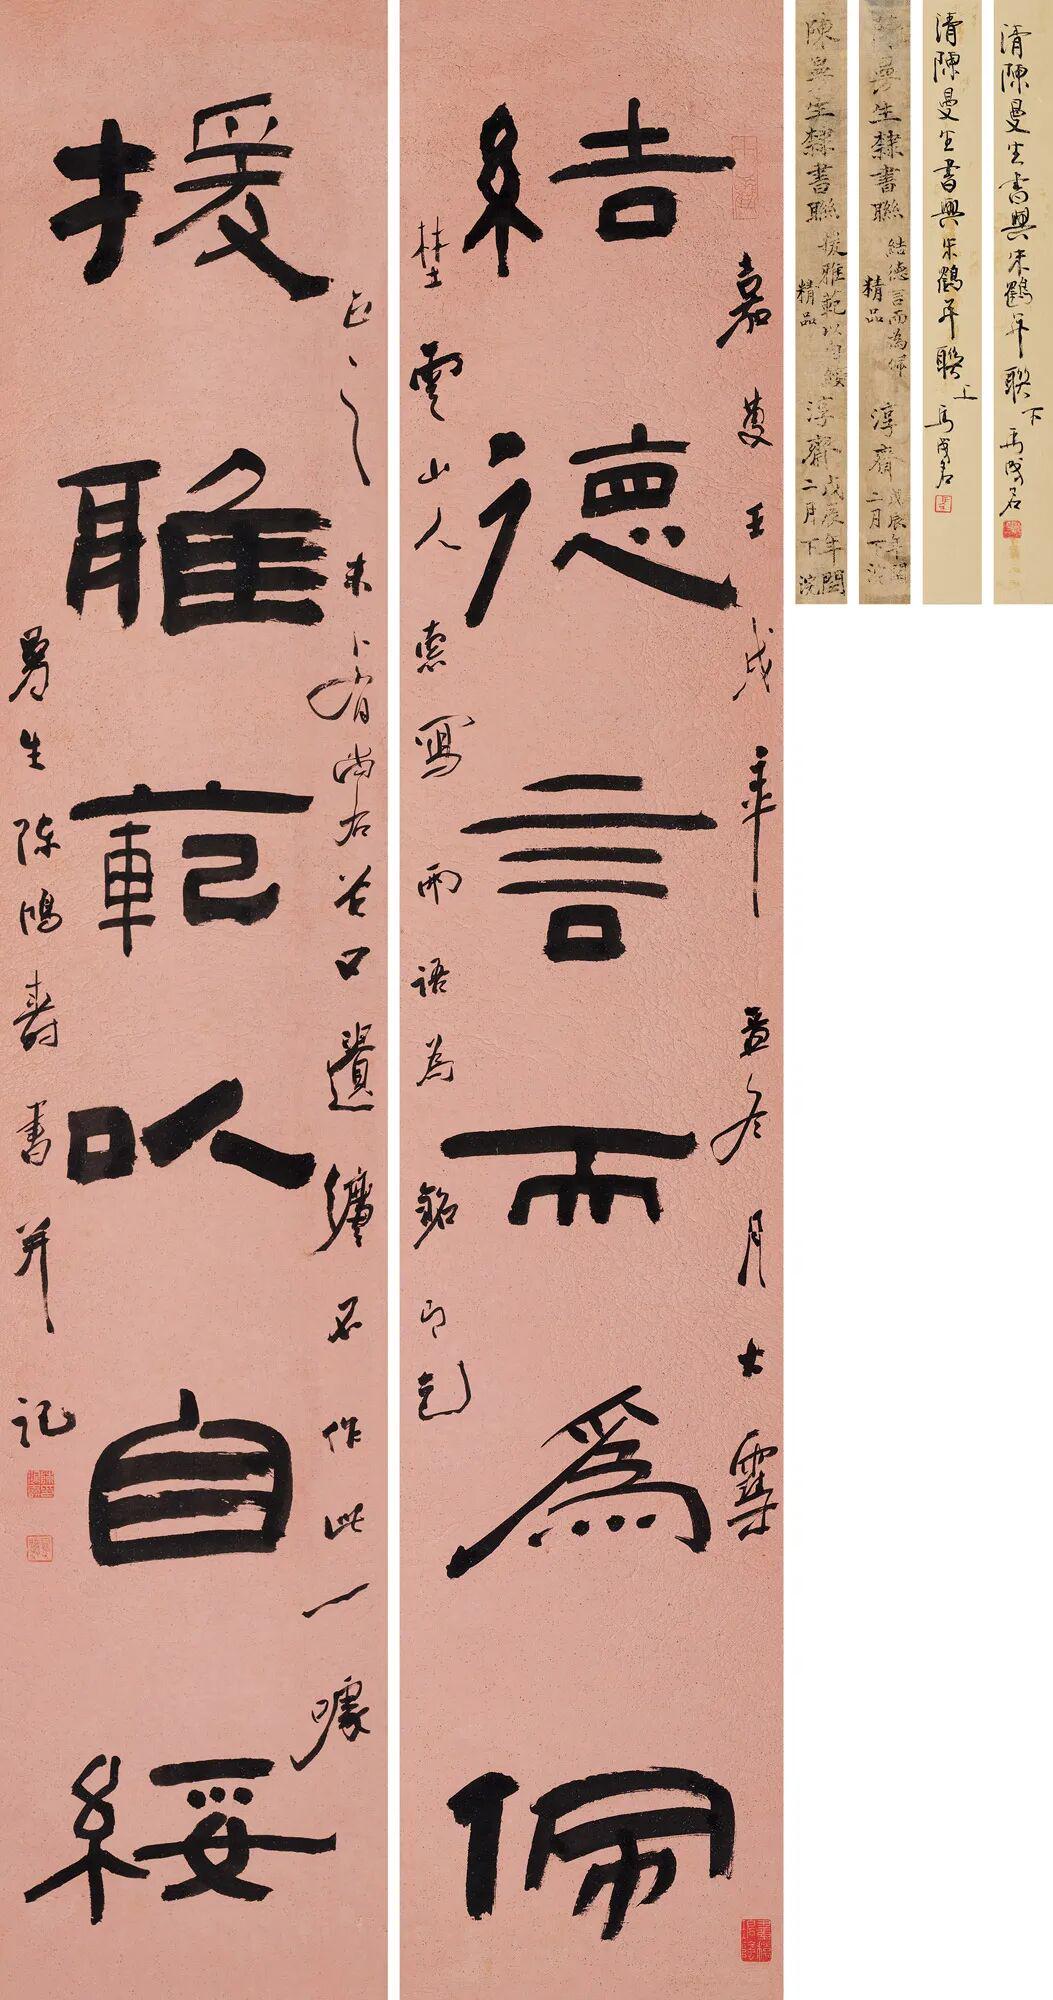 結德言而為佩
嘉慶壬戌年孟冬月大雪
埜雲山人索寫兩語為銘即乞
援雅範以自綏
正之未卜有尚右谷口遺
不作此一噱
曼生陳鴻壽書并記
陳曼生隸書聯
援雅範以自綏
精品
淳齋
戊辰年閏二月下浣
陳曼生隸書聯
結德言而為佩
精品
淳齋
戊辰年閏二月下浣
清陳曼生書與朱鶴年聯上
清陳曼生書與朱鶴年聯下